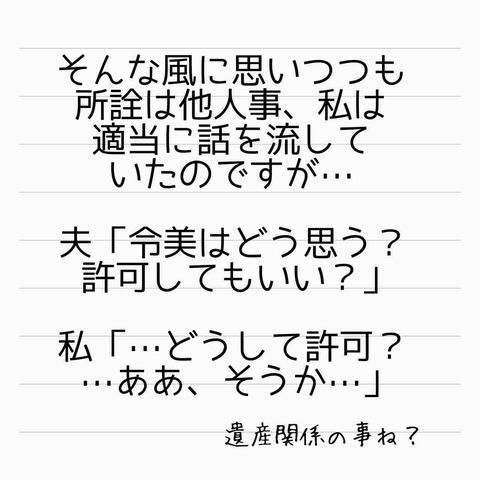 そんな風に思いつつも
所詮は他人事、私は
適当に話を流して
いたのですが…
夫「令美はどう思う？
許可してもいい？」
私「…どうして許可？
…ああ、そうか…」
遺産関係の事ね？